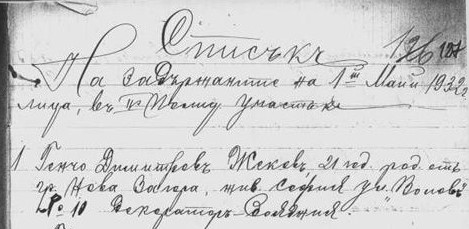 Списъкъ
136 137
На задържаните на 1й Май 1932 г
лица, въ Участъкъ
1 Генчо Димитровъ Жековъ 21 год. род. отъ
гр. Нова Загора, жив. София ул. "Попова"
№ 10 Декораторъ-Бояджия.